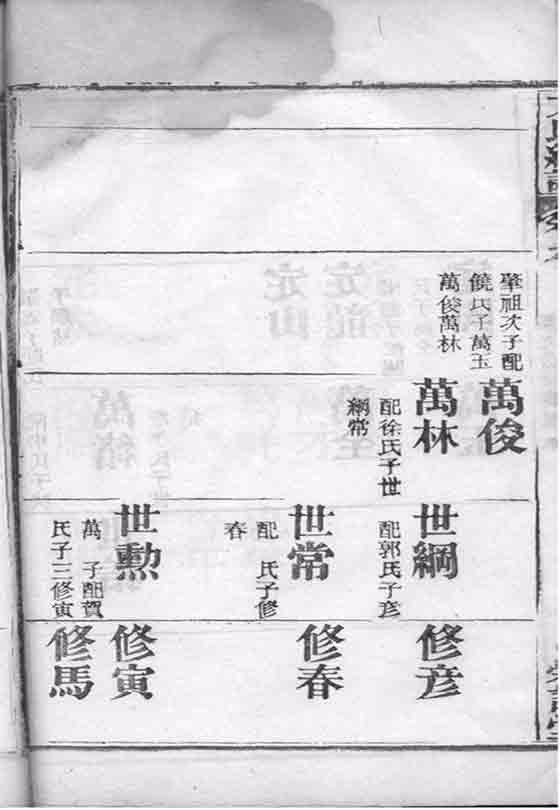 肇祖次子配
饒氏子萬玉
萬俊萬林
萬俊
萬林
配徐氏子世
綱常
世綱
配郭氏子彦
世常
配 氏子修
春
世勲
萬 子配賀
氏子三修寅
修彦
修春
修寅
修馬